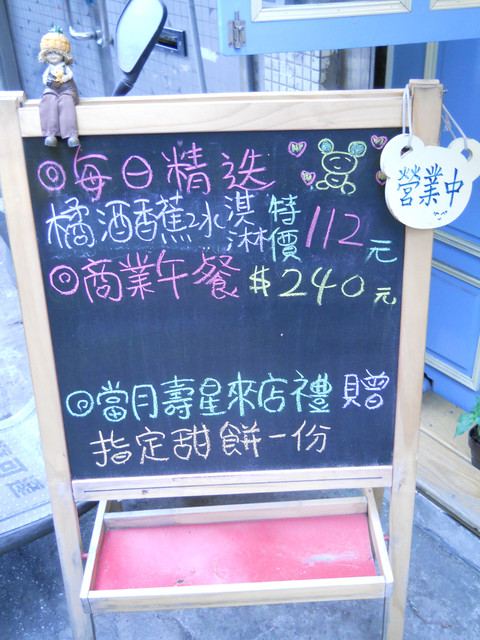 ◎每日精选
橘酒香蕉冰淇淋特價112元
◎商業午餐$240元
◎當月壽星來店禮贈
指定甜餅一份
營業中